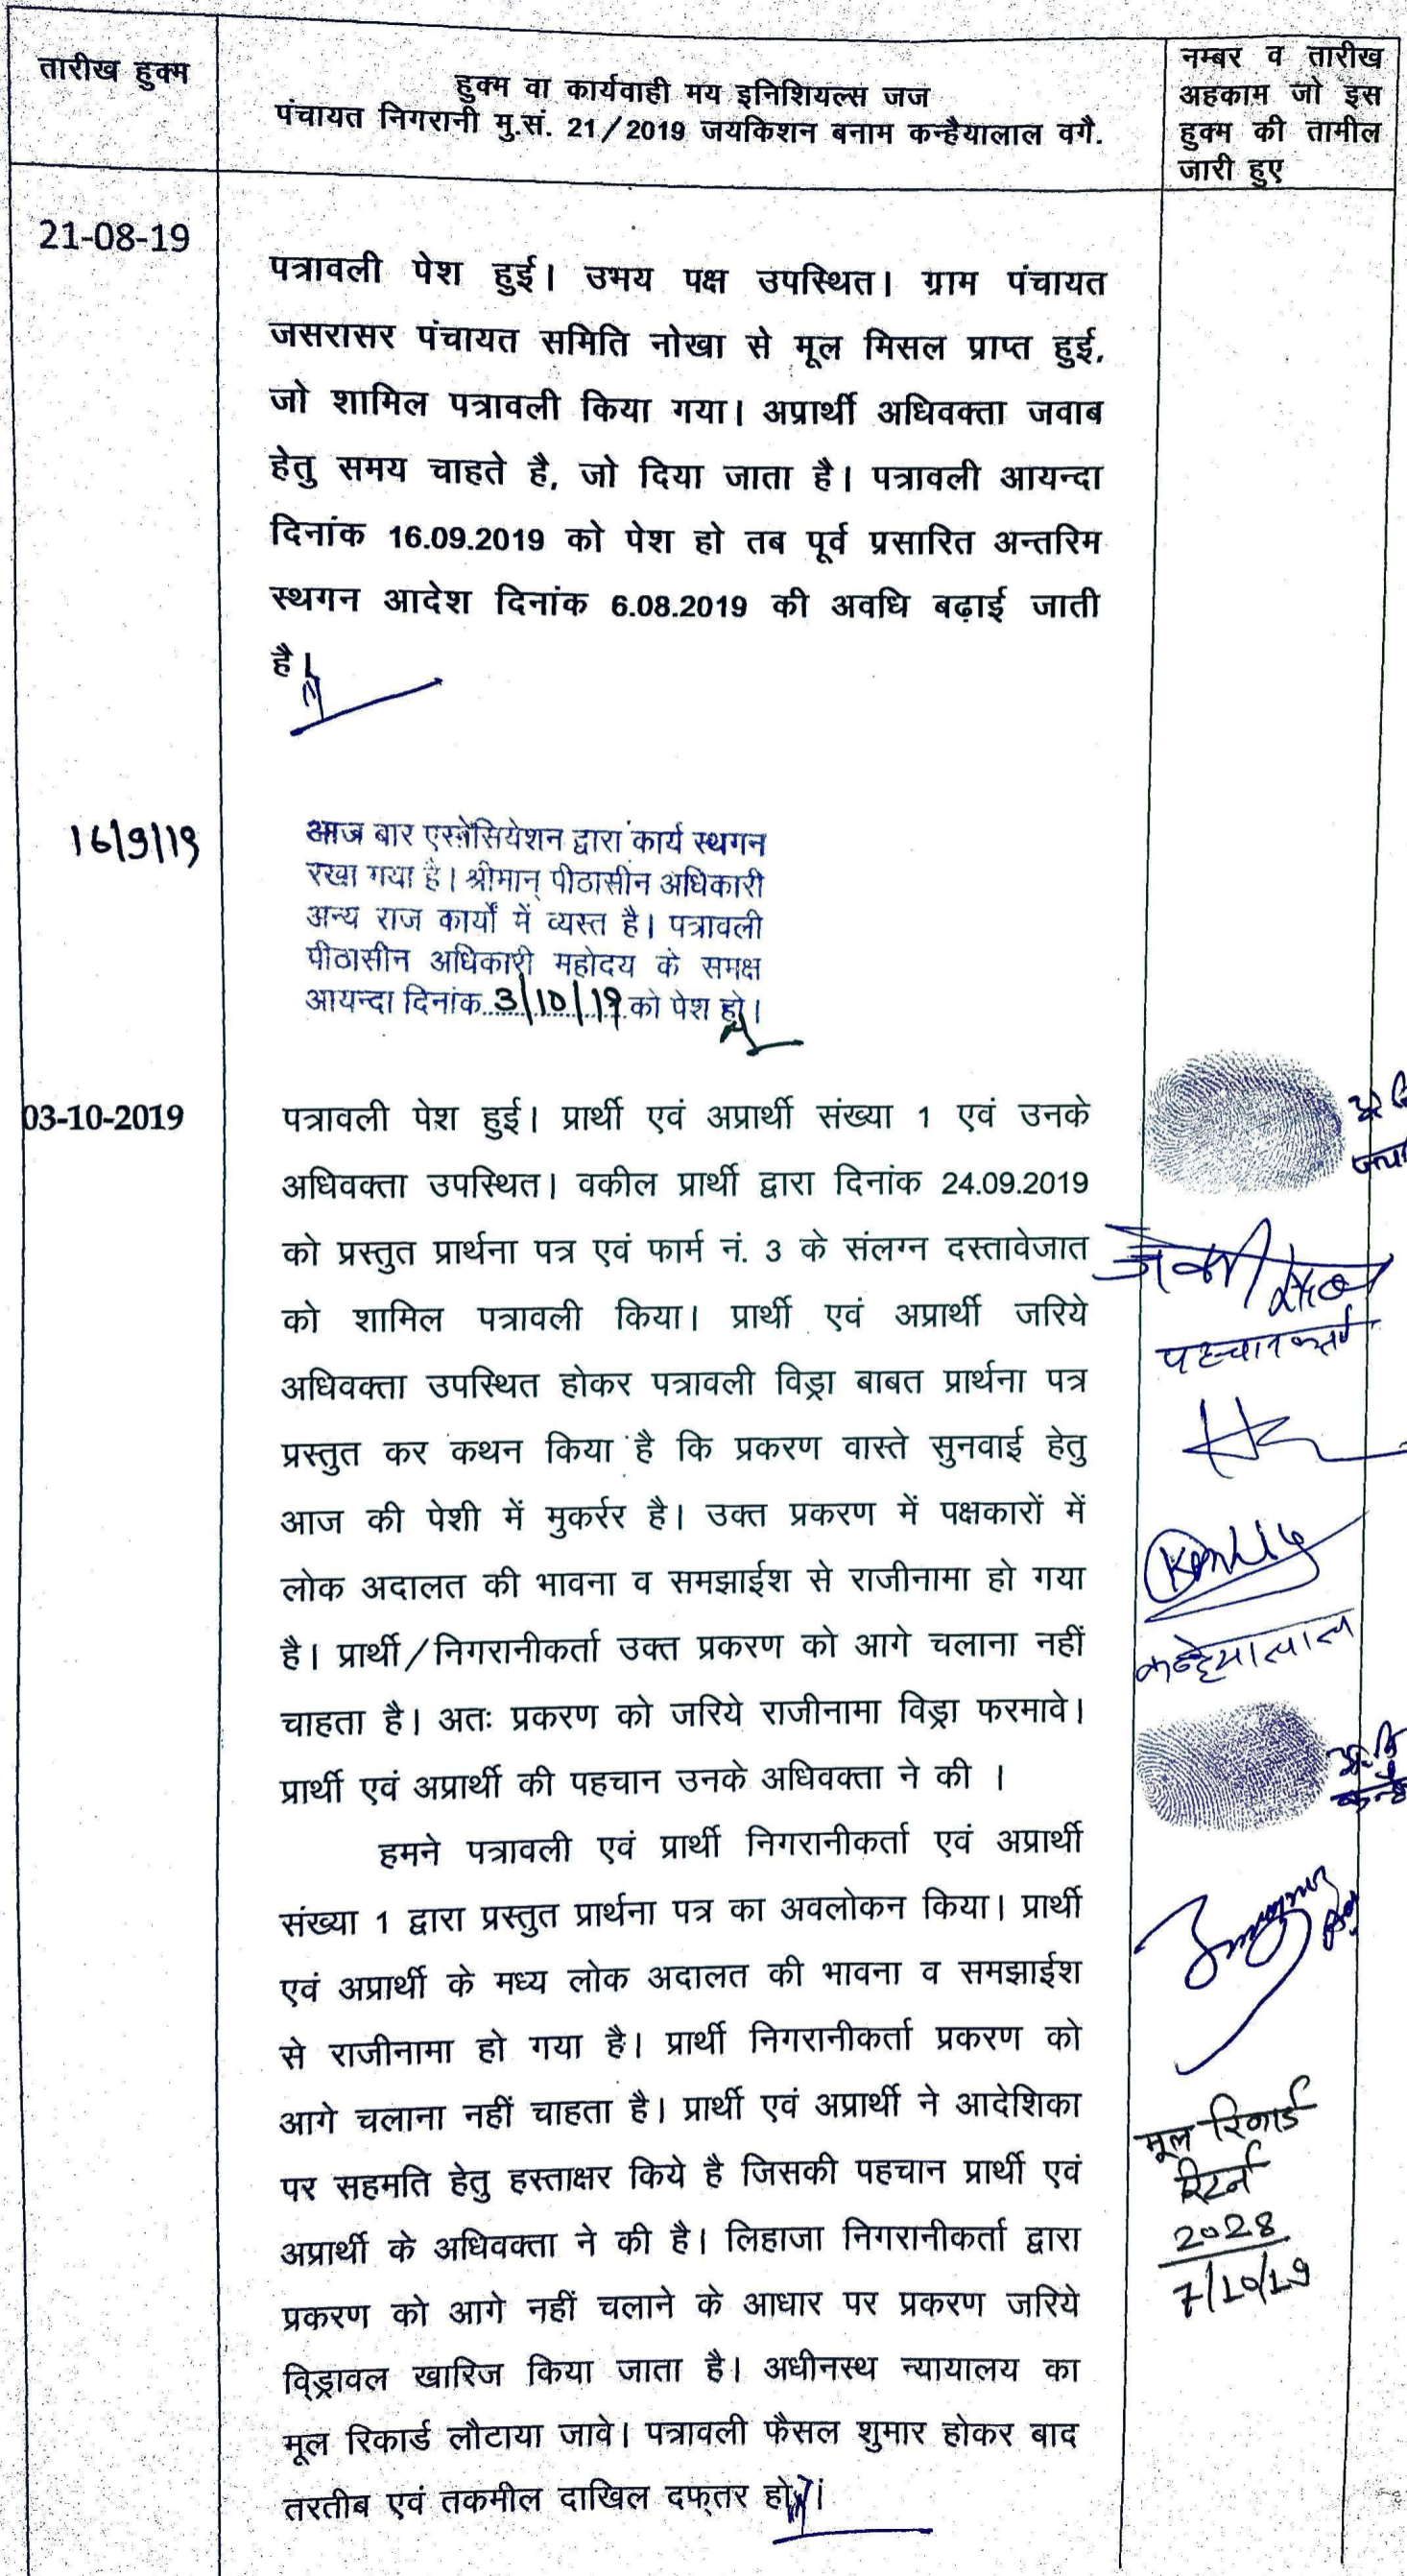 तारीख हुक्म
हुक्म वा कार्यवाही मय इनिशियल्स जज
पंचायत निगरानी मु.सं. 21/2019 जयकिशन बनाम कन्हैयालाल वगै.
नम्बर व तारीख
अहकाम जो इस
हुक्म की तामील
जारी हुए
21-08-19
पत्रावली पेश हुई। उभय पक्ष उपस्थित। ग्राम पंचायत
जसरासर पंचायत समिति नोखा से मूल मिसल प्राप्त हुई,
जो शामिल पत्रावली किया गया। अप्रार्थी अधिवक्ता जवाब
हेतु समय चाहते है, जो दिया जाता है। पत्रावली आयन्दा
दिनांक 16.09.2019 को पेश हो तब पूर्व प्रसारित अन्तरिम
स्थगन आदेश दिनांक 6.08.2019 की अवधि बढ़ाई जाती
है।
16/9/19
आज बार एसोसियेशन द्वारा कार्य स्थगन
रखा गया है। श्रीमान् पीठासीन अधिकारी
अन्य राज कार्यों में व्यस्त है। पत्रावली
पीठासीन अधिकारी महोदय के समक्ष
आयन्दा दिनांक 3/10/19 को पेश हो।
03-10-2019
पत्रावली पेश हुई। प्रार्थी एवं अप्रार्थी संख्या 1 एवं उनके
अधिवक्ता उपस्थित। वकील प्रार्थी द्वारा दिनांक 24.09.2019
को प्रस्तुत प्रार्थना पत्र एवं फार्म नं. 3 के संलग्न दस्तावेजात
को शामिल पत्रावली किया। प्रार्थी एवं अप्रार्थी जरिये
अधिवक्ता उपस्थित होकर पत्रावली विड्रा बाबत प्रार्थना पत्र
प्रस्तुत कर कथन किया है कि प्रकरण वास्ते सुनवाई हेतु
आज की पेशी में मुकर्रर है। उक्त प्रकरण में पक्षकारों में
लोक अदालत की भावना व समझाईश से राजीनामा हो गया
है। प्रार्थी/निगरानीकर्ता उक्त प्रकरण को आगे चलाना नहीं
चाहता है। अतः प्रकरण को जरिये राजीनामा विड्रा फरमावे।
प्रार्थी एवं अप्रार्थी की पहचान उनके अधिवक्ता ने की ।
हमने पत्रावली एवं प्रार्थी निगरानीकर्ता एवं अप्रार्थी
संख्या 1 द्वारा प्रस्तुत प्रार्थना पत्र का अवलोकन किया। प्रार्थी
एवं अप्रार्थी के मध्य लोक अदालत की भावना व समझाईश
से राजीनामा हो गया है। प्रार्थी निगरानीकर्ता प्रकरण को
आगे चलाना नहीं चाहता है। प्रार्थी एवं अप्रार्थी ने आदेशिका
पर सहमति हेतु हस्ताक्षर किये है जिसकी पहचान प्रार्थी एवं
अप्रार्थी के अधिवक्ता ने की है। लिहाजा निगरानीकर्ता द्वारा
प्रकरण को आगे नहीं चलाने के आधार पर प्रकरण जरिये
विड्रावल खारिज किया जाता है। अधीनस्थ न्यायालय का
मूल रिकार्ड लौटाया जावे। पत्रावली फैसल शुमार होकर बाद
तरतीब एवं तकमील दाखिल दफ्तर हो।
पहचानकर्ता
कन्हैयालाल
मूल रिकार्ड
रिटर्न
2028
7/10/19